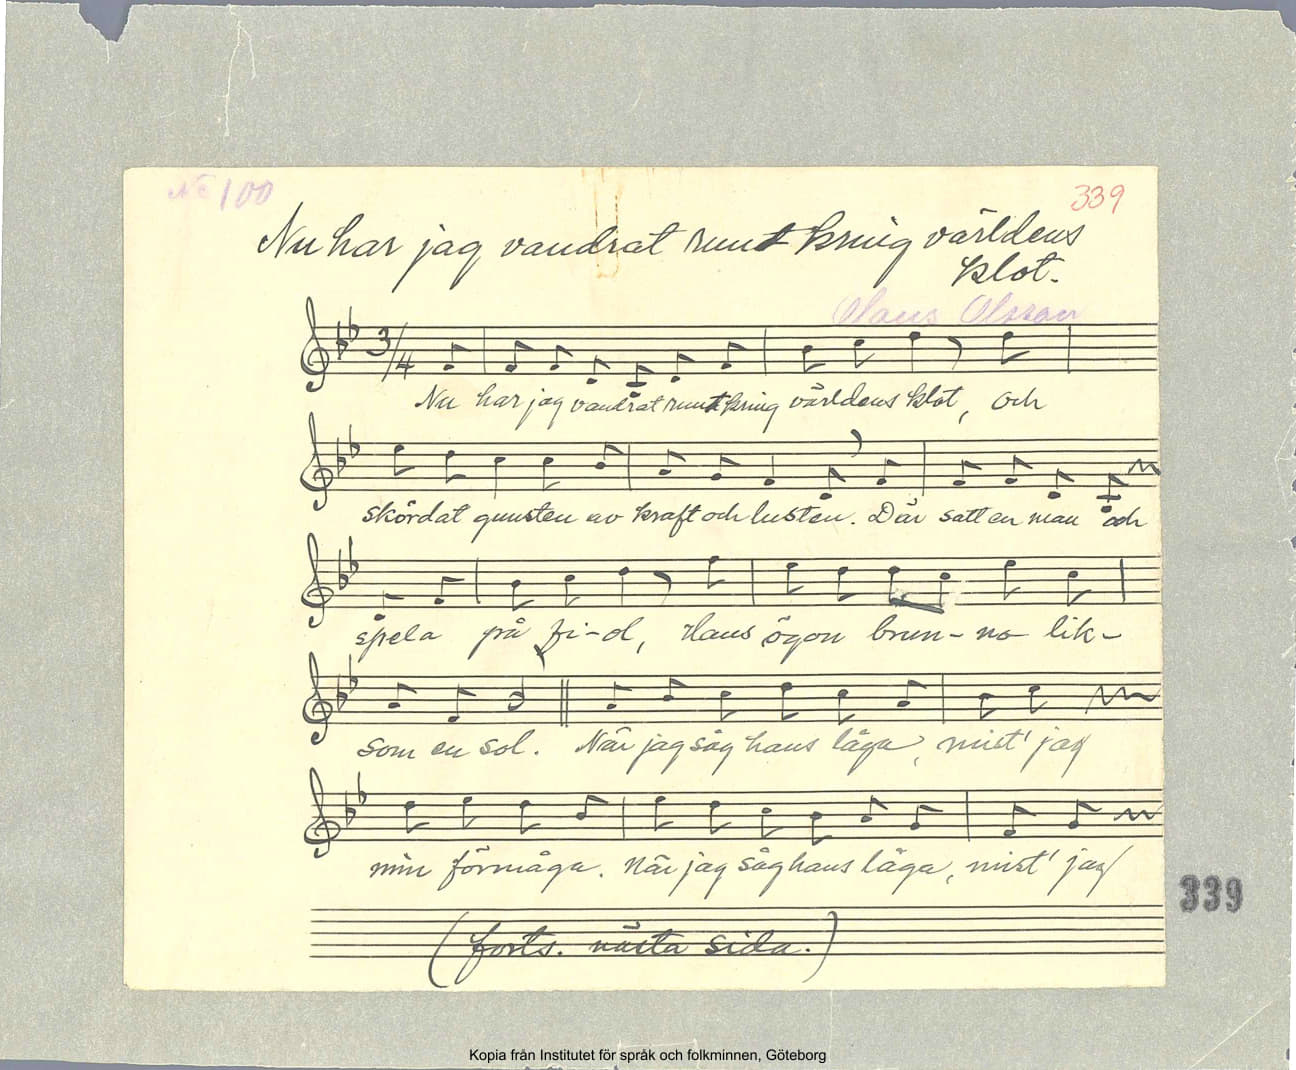 No 100
339
Nu har jag vandrat runt kring världens
klot.
Olaus Olsson
3/4
Nu har jag vandrat runt kring världens klot, och
skördat gunsten av kraft och lusten. Där satt en man och
spela på fi-ol, Hans ögon brun-no lik-
som en sol. När jag såg hans låga, mist' jag
min förmåga. När jag såg hans låga, mist' jag
(forts. nästa sida.)
339
Kopia från Institutet för språk och folkminnen, Göteborg